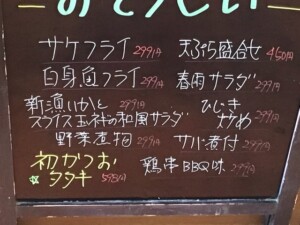 おそうざい
サケフライ 299円
白身魚フライ 299円
新漁いかと 299円
スライス玉ネギの和風サラダ
野菜煮物 299円
初かつお
タタキ 598円
天ぷら盛合せ 450円
春雨サラダ 299円
ひじき
炒め 299円
サバ煮付 299円
鶏串BBQ味 299円